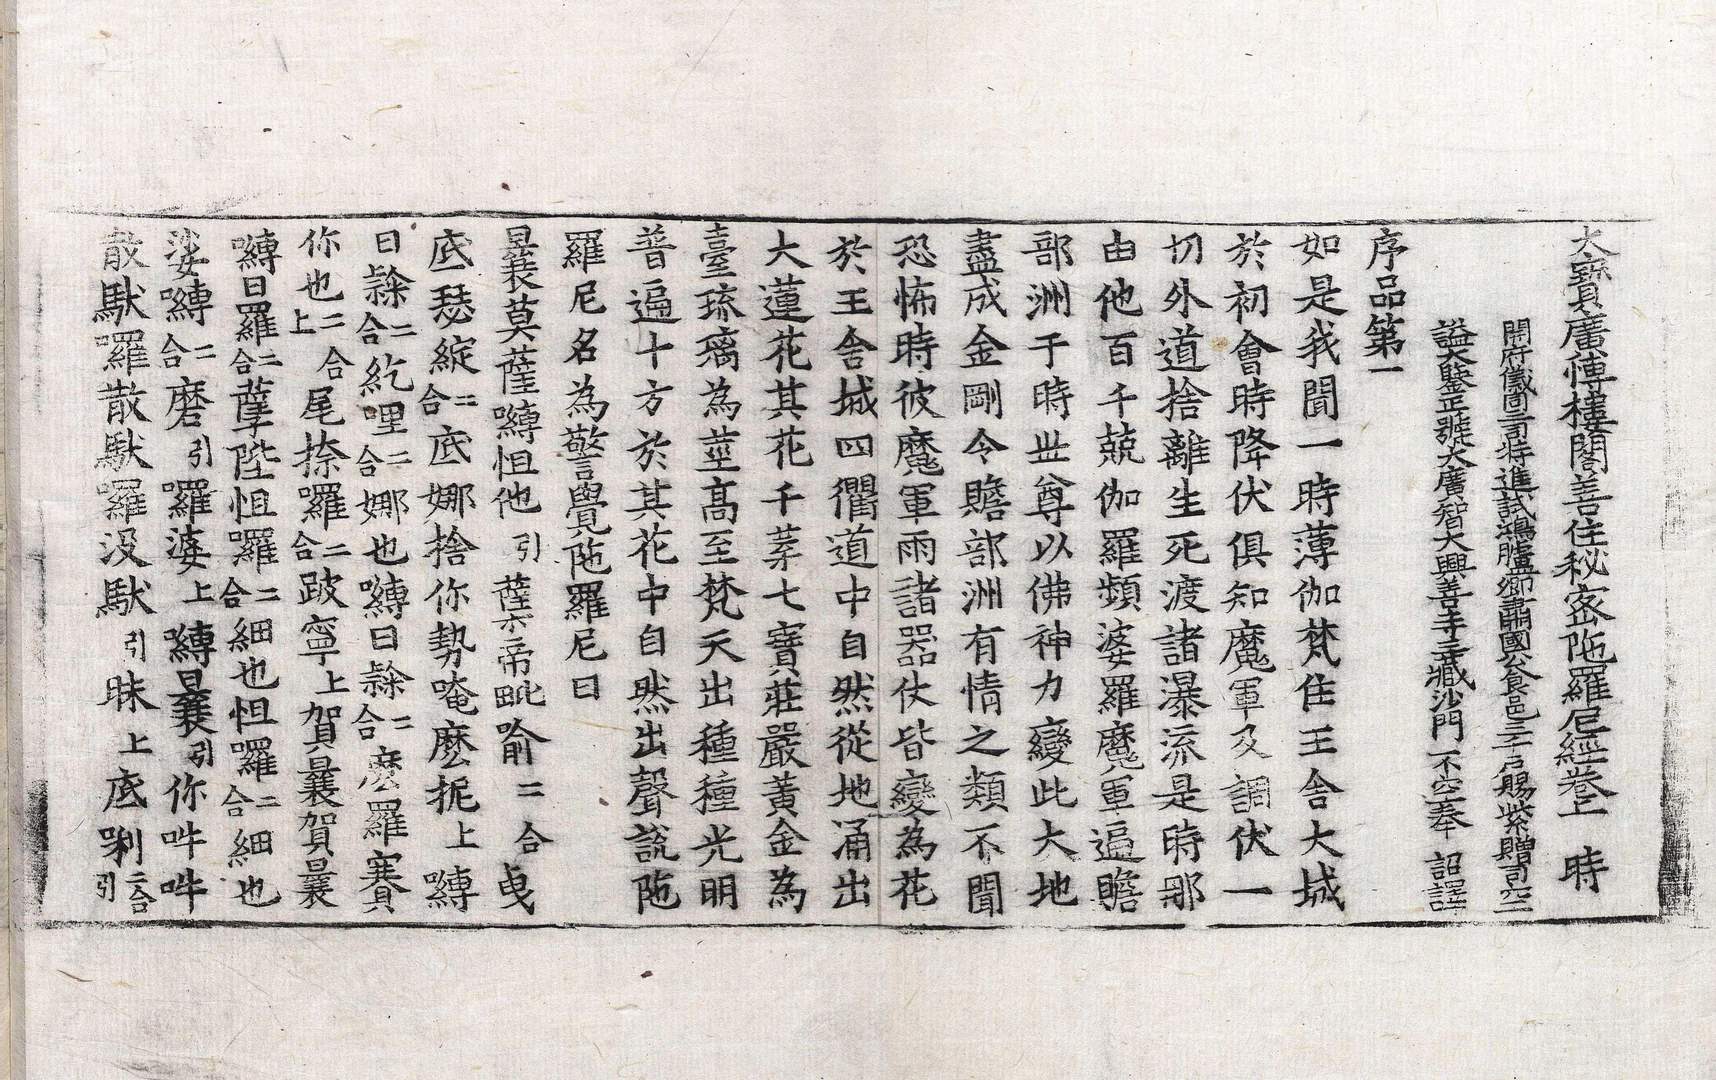 大寶廣愽樓閣善住秘密陁羅尼經卷上　時
開府儀同三司特進試鴻臚卿肅國公食邑三千户賜紫贈司空
謚大鑒正號大廣智大興善寺三藏沙門　不空奉　詔譯
序品第一
如是我聞一時薄伽梵住王舎大城
於初會時降伏俱知魔軍及調伏一
切外道捨離生死渡諸瀑流是時那
由他百千兢伽羅頻婆羅魔軍遍贍
部洲于時世尊以佛神力變此大地
盡成金剛令贍部洲有情之類不聞
恐怖時彼魔軍雨諸器仗皆變為花
於王舎城四衢道中自然從地涌出
大蓮花其花千葉七寶莊嚴黄金為
臺琉璃為莖高至梵天出種種光明
普遍十方於其花中自然出聲說陁
羅尼名為警覺陁羅尼曰
曩莫薩嚩怛他引薩帝毗喻二合曳
底瑟綻二合底娜捨你勢唵麽抳上嚩
日𨽾二合紇哩二合娜也嚩日𨽾二合麽羅賽
你也二合上尾捺囉二合跛寧上賀曩賀曩
嚩日羅二合孽陛怛囉二合細也怛囉二合細也
娑嚩二合磨引囉婆上嚩曩引你吽吽
散馱囉散馱羅没馱引昧上底唎二合引